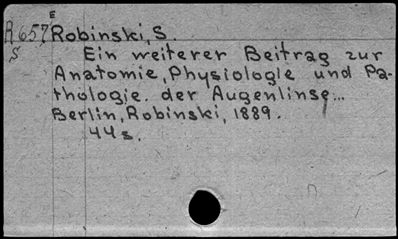 E
R657 Robinski, S.
S Ein weiterer Beitrag zur
Anatomie, Physiologie und Pa-
thologie. der Augenlinse...
Berlin, Robinski, 1889.
44s.